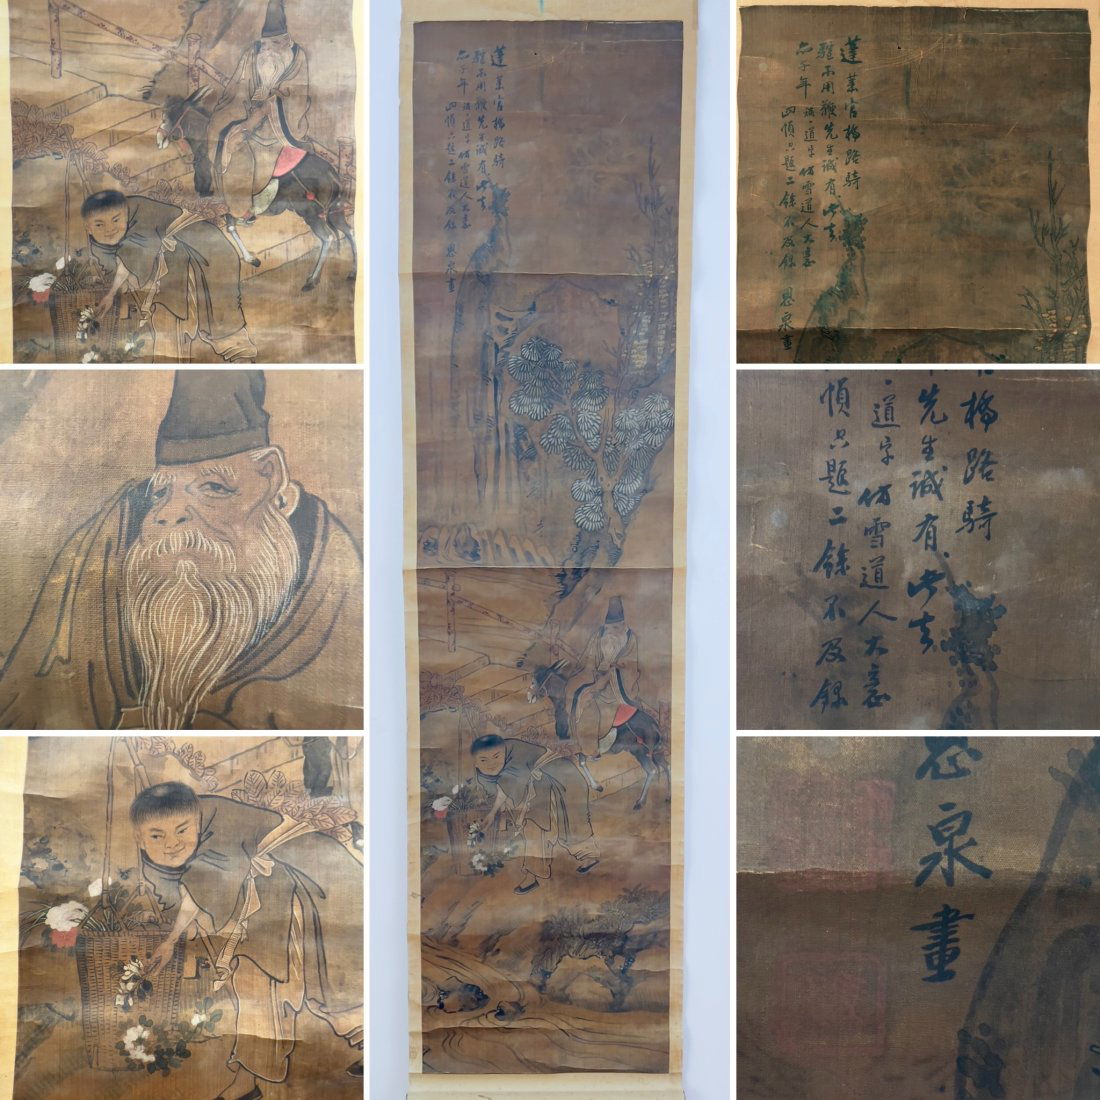 蓬莱官橋路騎
驢不用鞭先生誠有此去
丙子年 道字仿雪道人大意
四幀只題二餘不及錄
恩泉畫
蓬莱官橋路騎
驢不用鞭先生誠有此去
丙子年 道字仿雪道人大意
四幀只題二餘不及錄
恩泉畫
橋路騎
先生誠有此去
道字仿雪道人大意
幀只題二餘不及錄
泉畫